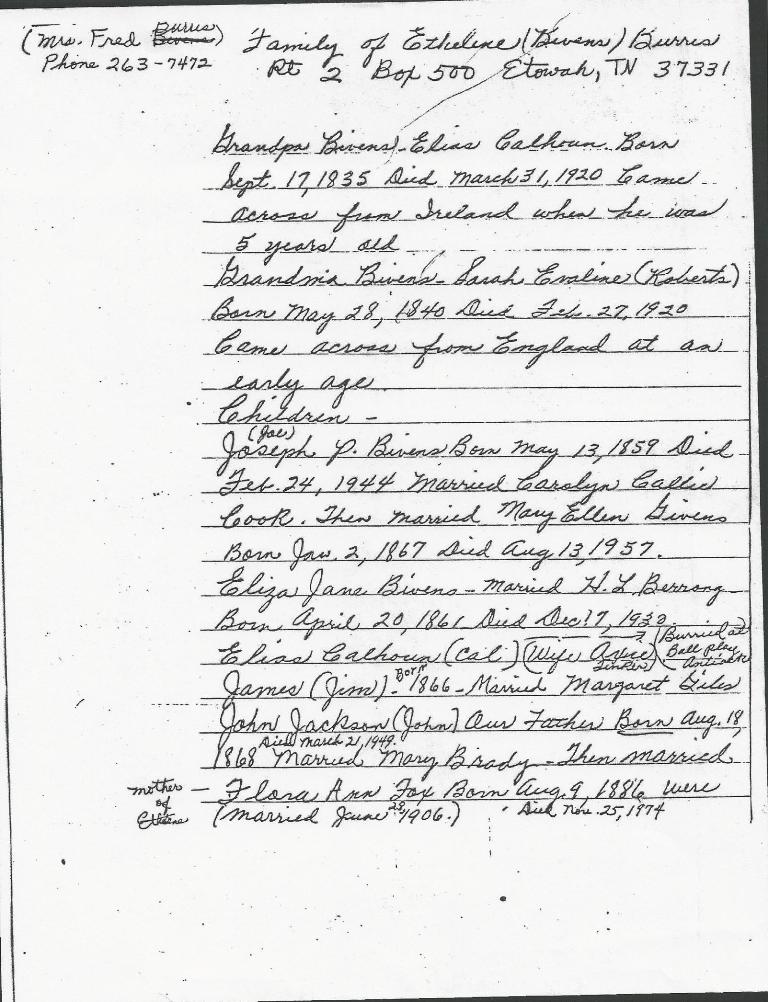 (Mrs. Fred Burris Bivens) Family of Etheline (Bivens) Burris
Phone 263-7472 Rt 2 Box 500 Etowah, TN 37331
Grandpa Bivens - Elias Calhoun. Born
Sept. 17, 1835 Died March 31, 1920 Came
across from Ireland when he was
5 years old
Grandma Bivens - Sarah Evaline (Roberts)
Born May 28, 1840 Died Feb. 27, 1920
Came across from England at an
early age
Children -
(Joe)
Joseph P. Bivens Born May 13, 1859 Died
Feb. 24, 1944 Married Carolyn Callie
Cook. Then married Mary Ellen Givens
Born Jan. 2, 1867 Died Aug 13, 1957.
Eliza Jane Bivens - Married H. L Berrong
Born April 20, 1861 Died Dec 17, 1932
Elias Calhoun (Cal) (Wife Avie (Burried at
Ball Play
James (Jim) - Born 1866 - Married Margaret Giles
John Jackson (John) Our Father Born Aug. 18,
Died March 21, 1949.
1868 Married Mary Brady - Then married
mother of - Flora Ann Fox Born Aug. 9, 1886 were
(married June 28, 1906.) Died Nov. 25, 1974